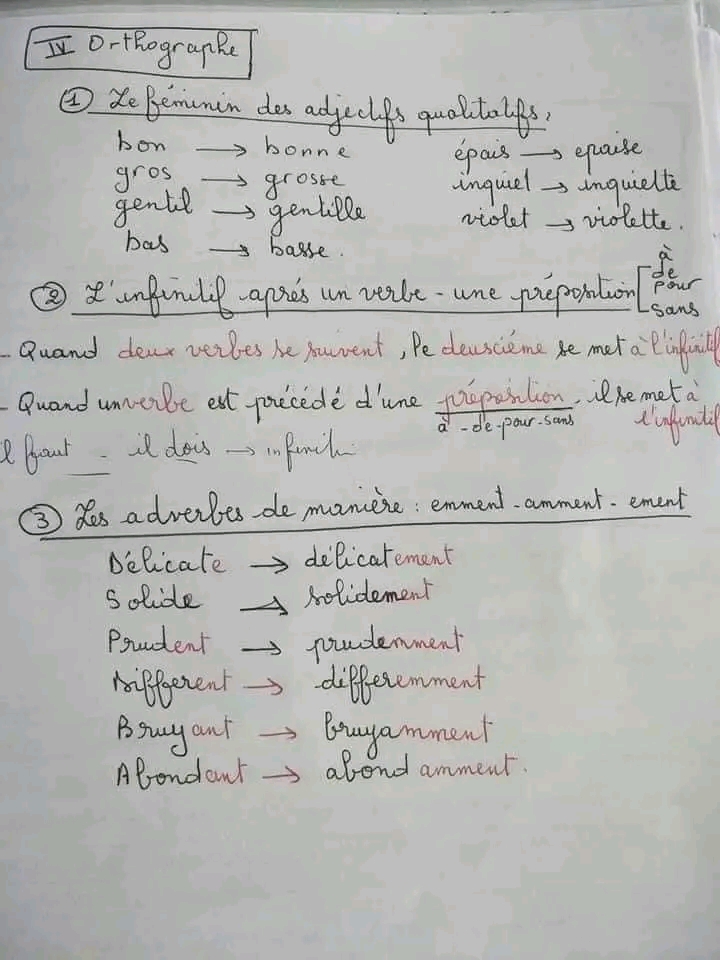 IV Orthographe
① Le féminin des adjectifs qualitatifs,
bon → bonne épais → epaise
gros → grosse inquiet → inquiette
gentil → gentille violet → violette.
bas → basse.
② L'infinitif aprés un verbe - une préposition [ à de pour sans
- Quand deux verbes se suivent, le deuscième se met à l'infinitif
- Quand un verbe est précédé d'une préposition, il se met à l'infinitif
à - de - pour - sans
il faut _ il dois → infinitif
③ Les adverbes de manière : emment - amment - ement
Délicate → délicatement
Solide → solidement
Prudent → prudemment
Different → differemment
Bruyant → bruyamment
Abondant → abondamment.